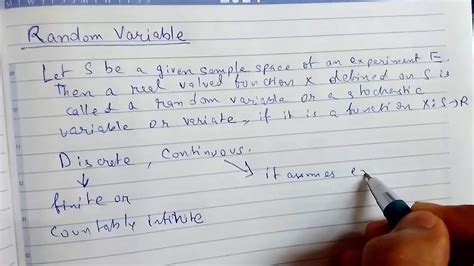 Random Variable
Let S be a given sample space of an experiment E.
Then a real valued function X defined on S is
called a random variable or a stochastic
variable or variate, if it is a function X:S→R
Discrete, Continuous.
it assumes
finite or
countably infinite